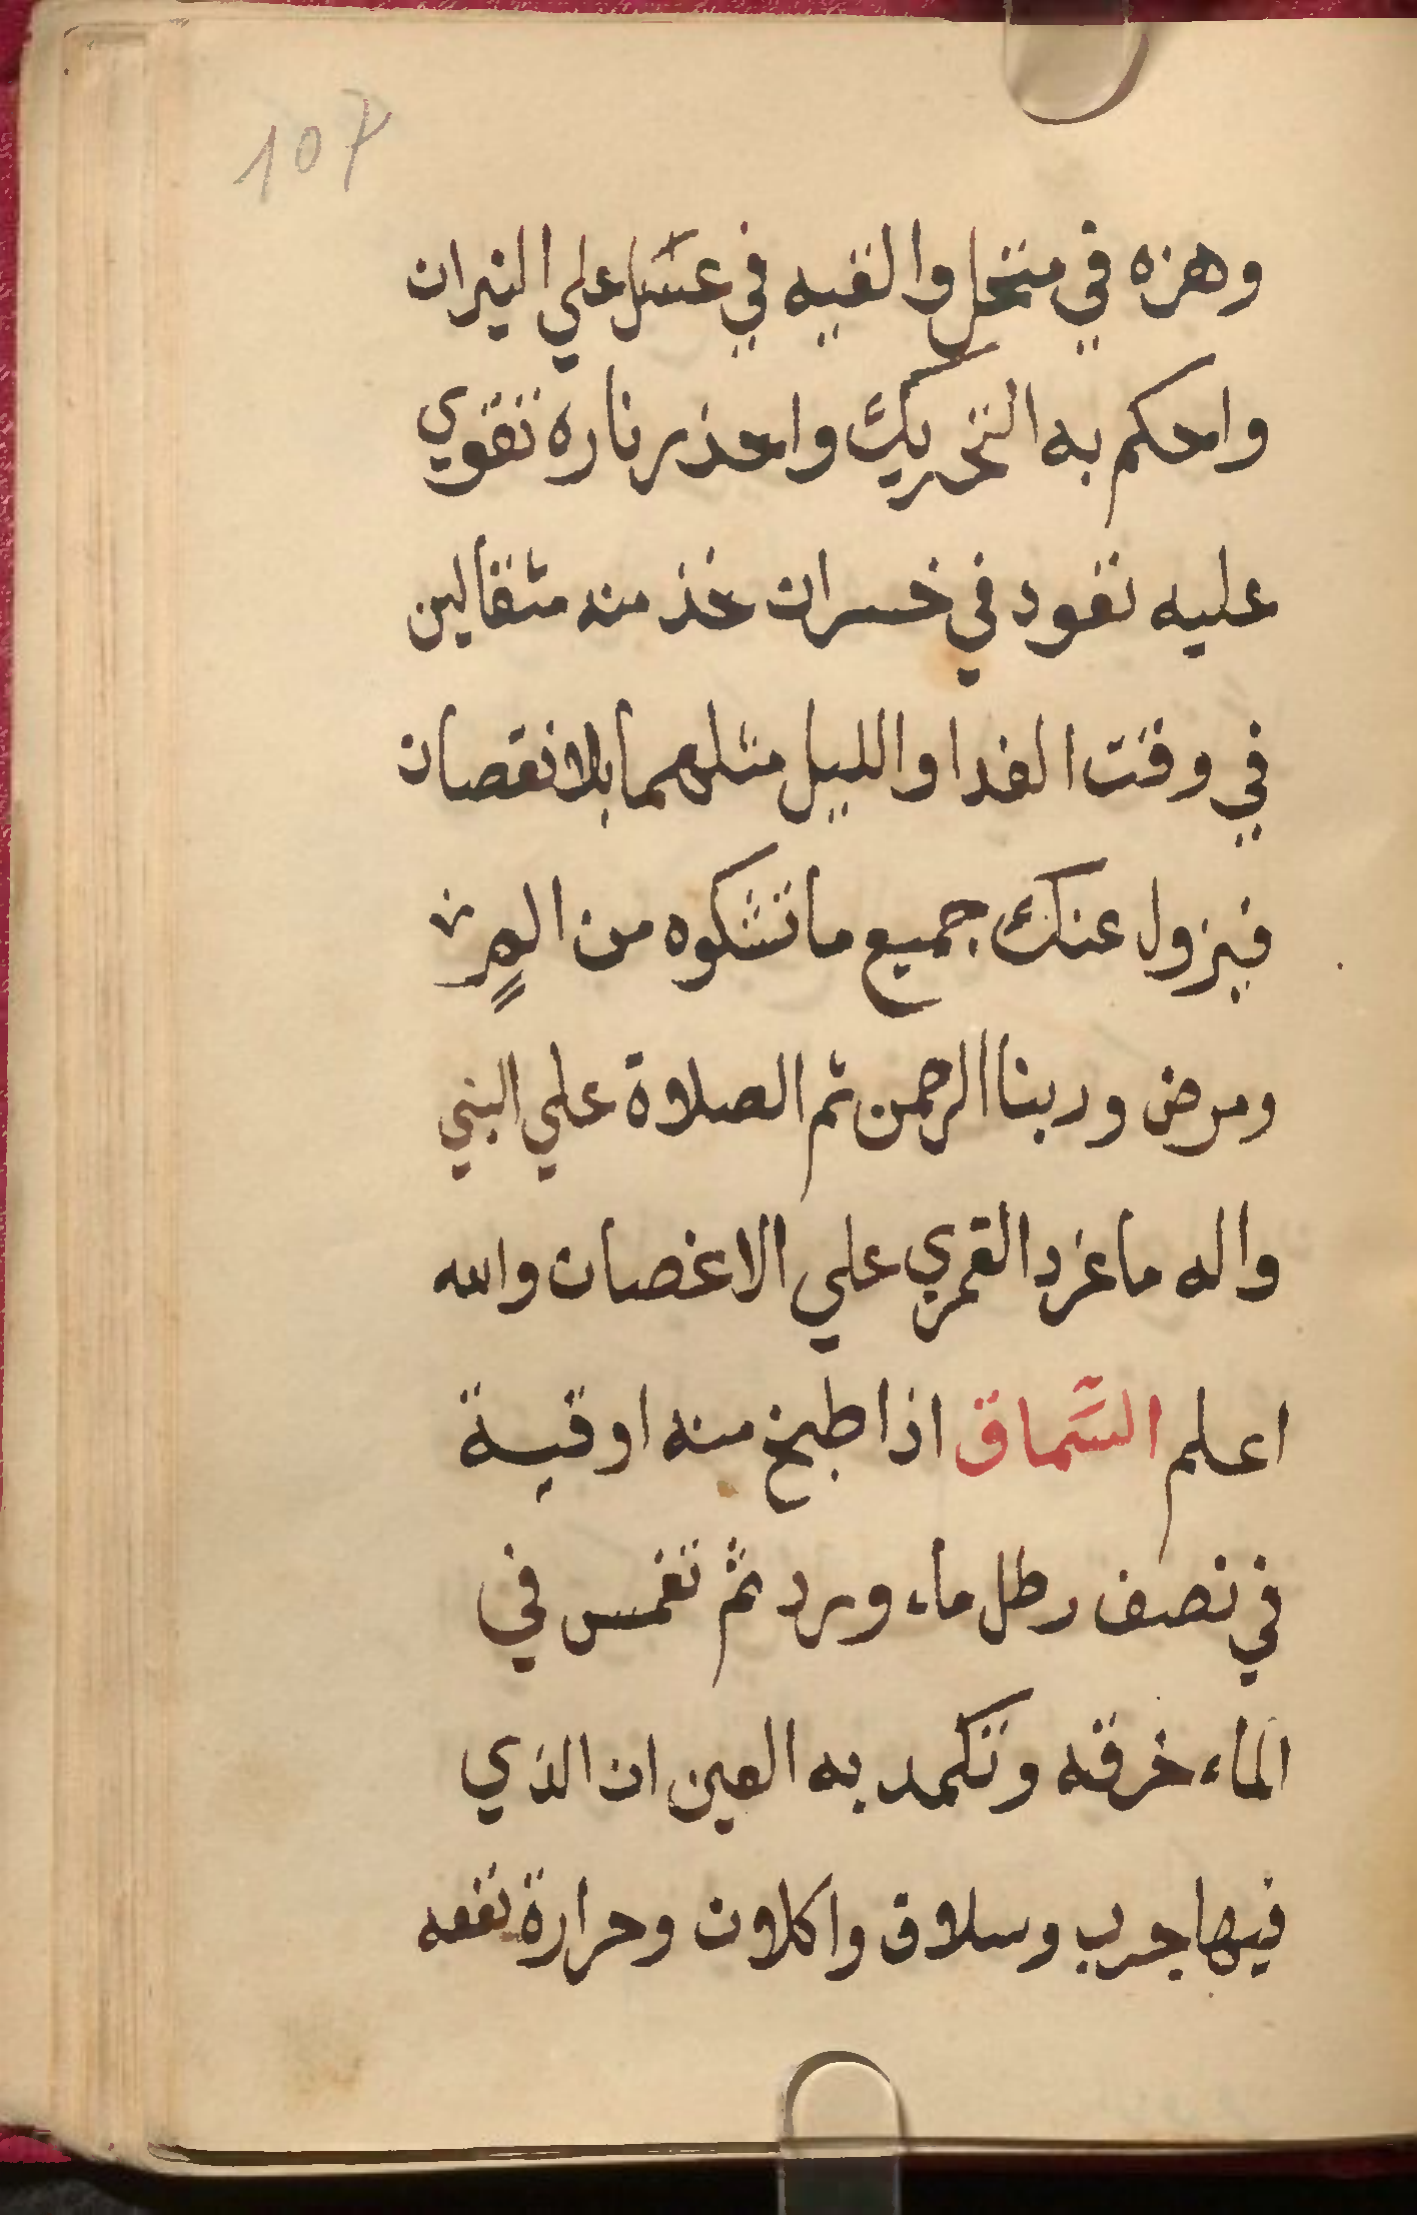 107
وهزه في منخل والقيه في عسل علي النيران
واحكم به التحريك واحذر ناره تقوي
عليه تعود في خسران خذ منه مثقالين
في وقت الغدا والليل مثلهما بلا نقصان
فيزول عنك جميع ما تشكوه من الم
ومرض وربنا الرحمن ثم الصلاة علي النبي
واله ما غرد القمري علي الاغصان والله
اعلم السَّماق اذا طبخ منه اوقية
في نصف رطل ماء ورد ثم تغمس في
الماء خرقه وتكمد به العين ان الذي
فيها جرب وسلاق واكلان وحرارة نفعه